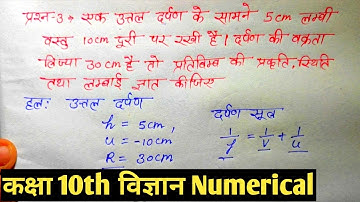 प्रश्न-3→ एक उत्तल दर्पण के सामने 5cm लम्बी
वस्तु 10cm दूरी पर रखी है। दर्पण की वक्रता
त्रिज्या 30cm है तो प्रतिबिम्ब की प्रकृति, स्थिति
तथा लम्बाई ज्ञात कीजिए
हल: उत्तल दर्पण
h = 5cm,
u = -10cm
R = 30cm
दर्पण सूत्र
1/f = 1/v + 1/u
कक्षा 10th विज्ञान Numerical